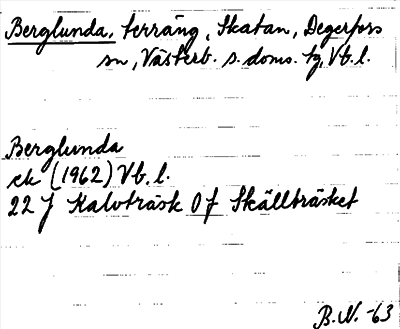 Berglunda, terräng, Skatan, Degerfors
sn, Västerb. s. doms. tg, Vb. l.
Berglunda
ek (1962) Vb. l.
22 J Kalvträsk 0 f Skällträsket
B.N. -63